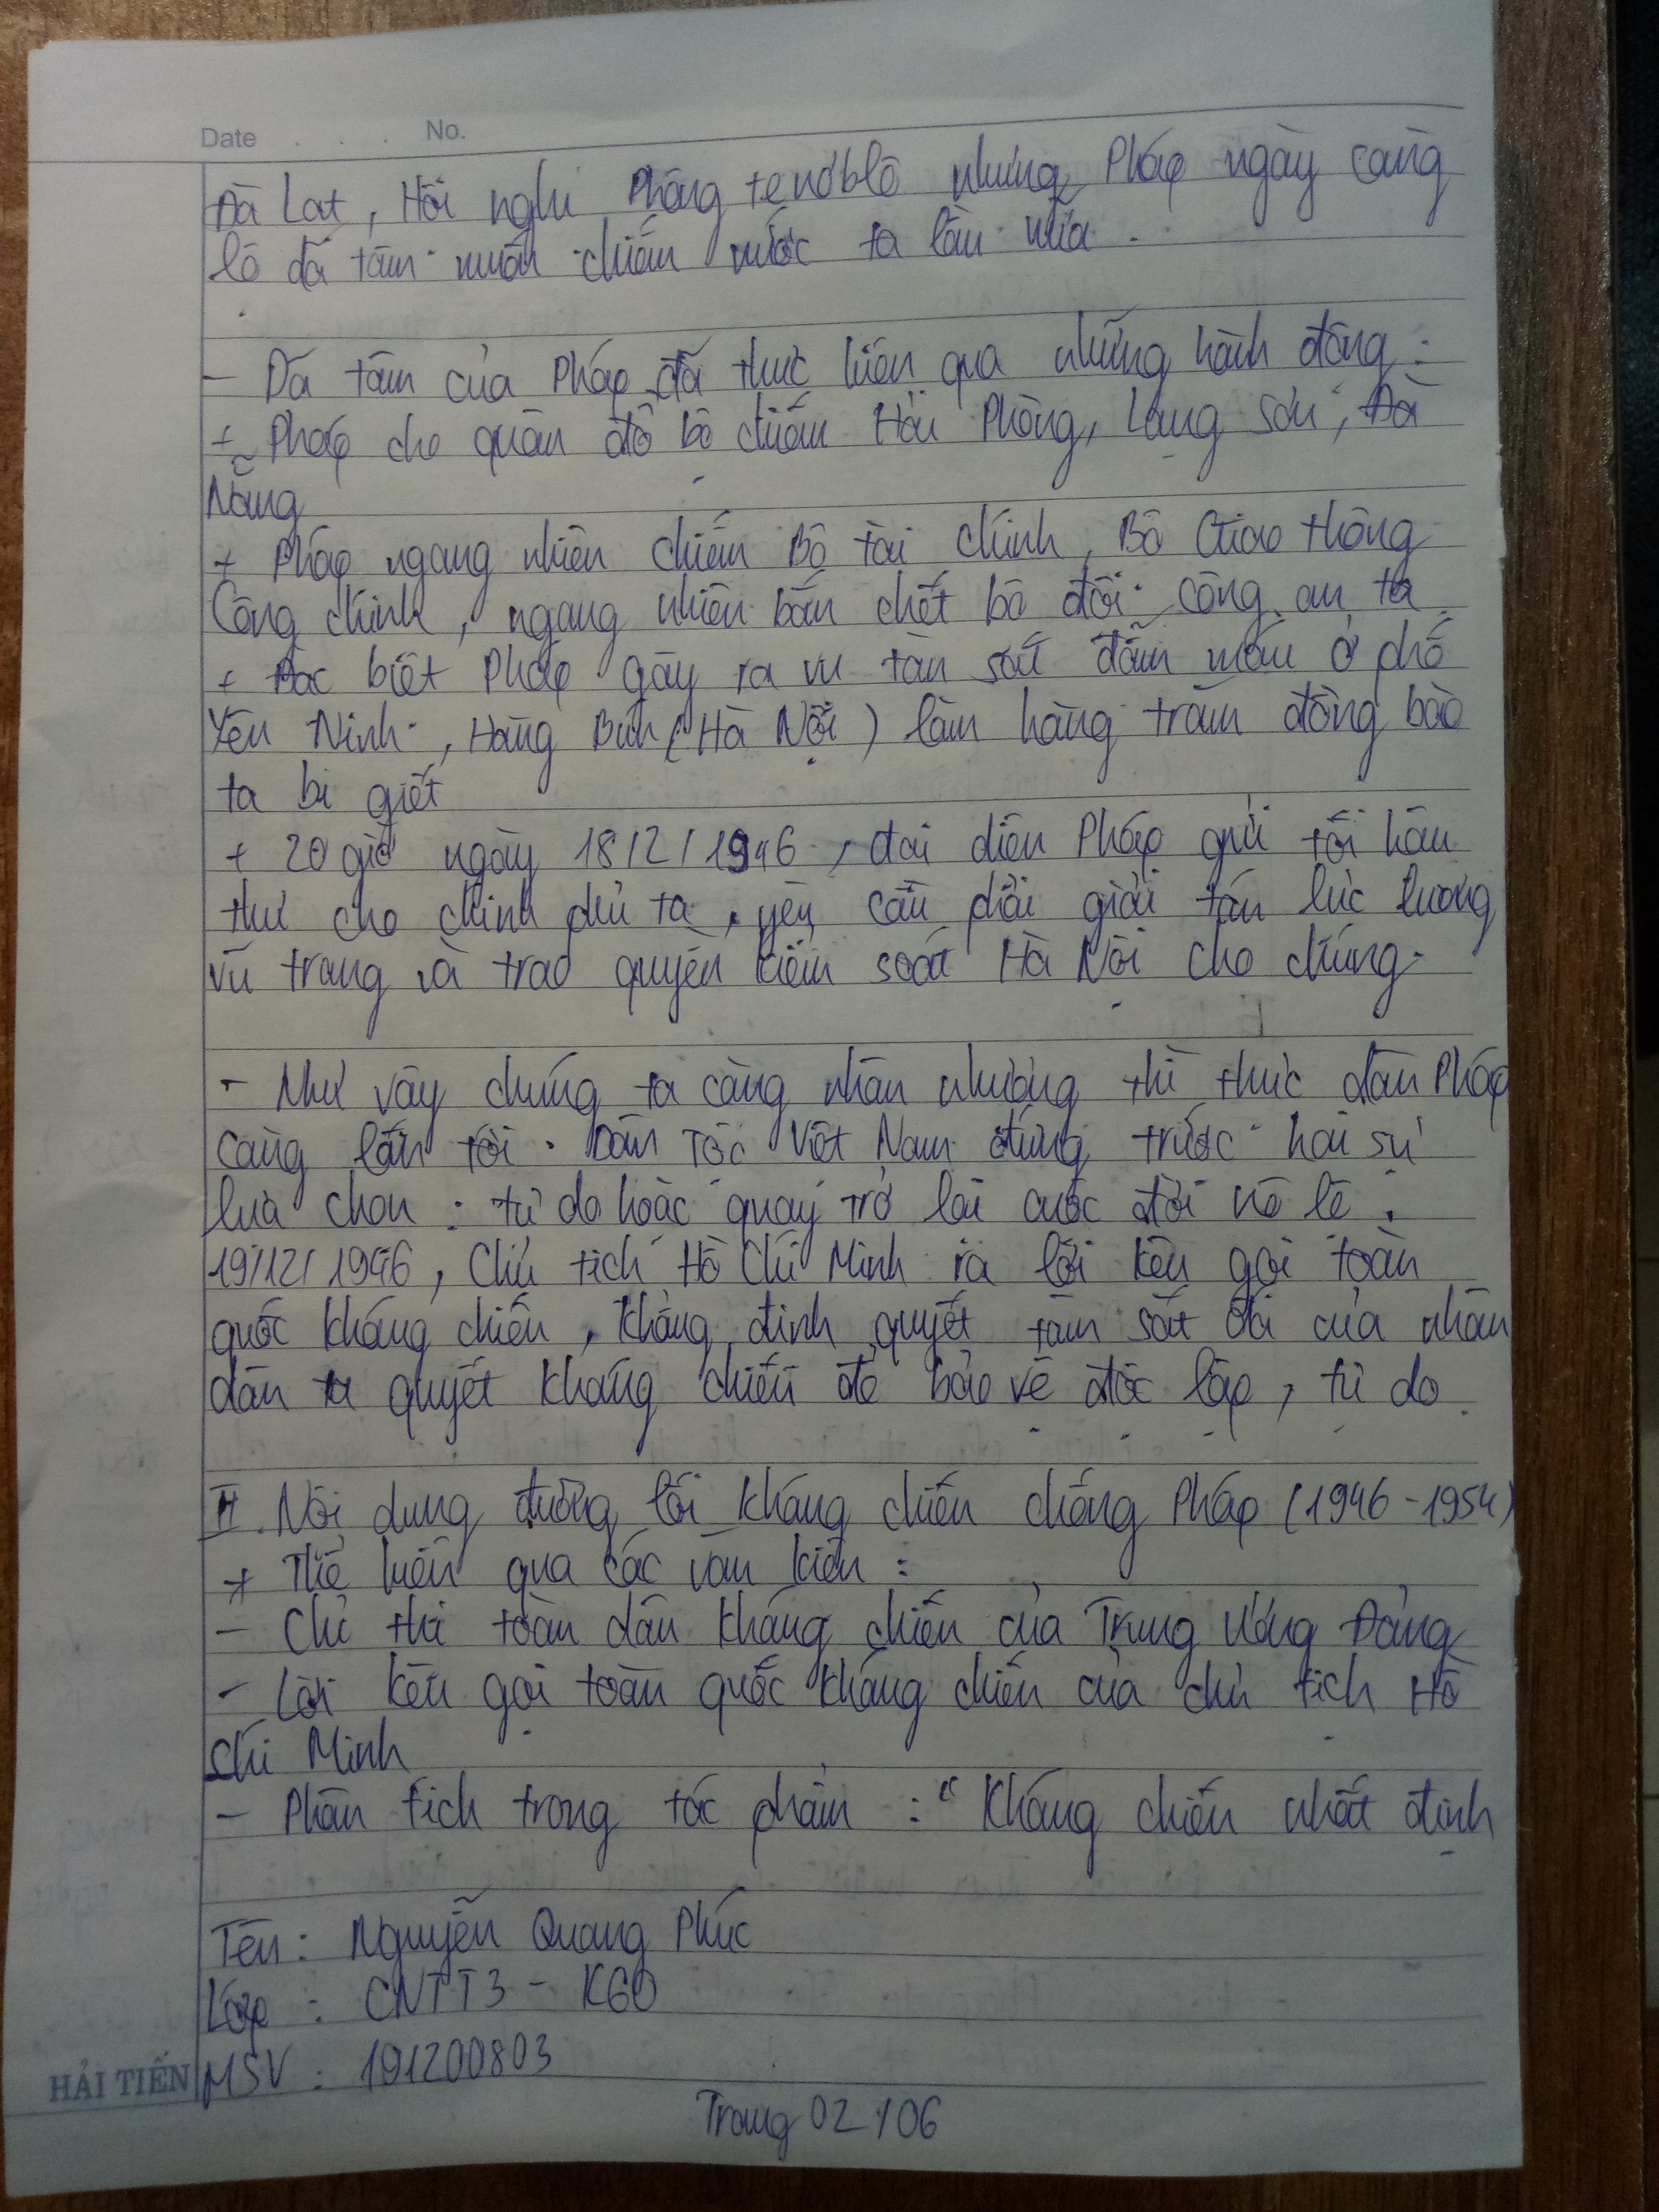 Date . . . No.
Đà Lạt, Hội nghị Phôngtenơblô nhưng Pháp ngày càng
lộ dã tâm muốn chiếm nước ta lần nữa.
- Dã tâm của Pháp đã thực hiện qua những hành động:
+ Pháp cho quân đổ bộ chiếm Hải Phòng, Lạng Sơn, Đà
Nẵng
+ Pháp ngang nhiên chiếm Bộ tài chính, Bộ Giao thông
Công chính, ngang nhiên bắn chết bộ đội công an ta
+ Đặc biệt Pháp gây ra vụ tàn sát đẫm máu ở phố
Yên Ninh, Hàng Bún (Hà Nội) làm hàng trăm đồng bào
ta bị giết
+ 20 giờ ngày 18/2/1946, đại diện Pháp gửi tối hậu
thư cho chính phủ ta, yêu cầu phải giải tán lực lượng
vũ trang và trao quyền kiểm soát Hà Nội cho chúng.
- Như vậy chúng ta càng nhân nhượng thì thực dân Pháp
càng lấn tới. Dân Tộc Việt Nam đứng trước hai sự
lựa chọn: tự do hoặc quay trở lại cuộc đời nô lệ.
19/12/1946, Chủ tịch Hồ Chí Minh ra lời kêu gọi toàn
quốc kháng chiến, khẳng định quyết tâm sắt đá của nhân
dân ta quyết kháng chiến để bảo vệ độc lập, tự do.
II. Nội dung đường lối kháng chiến chống Pháp (1946-1954)
* Thể hiện qua các văn kiện:
- Chỉ thị toàn dân kháng chiến của Trung Ương Đảng
- Lời kêu gọi toàn quốc kháng chiến của chủ tịch Hồ
Chí Minh
- Phân tích trong tác phẩm: "Kháng chiến nhất định
Tên: Nguyễn Quang Phúc
Lớp: CNTT3 - K60
HẢI TIẾN MSV: 191200803
Trang 02/06